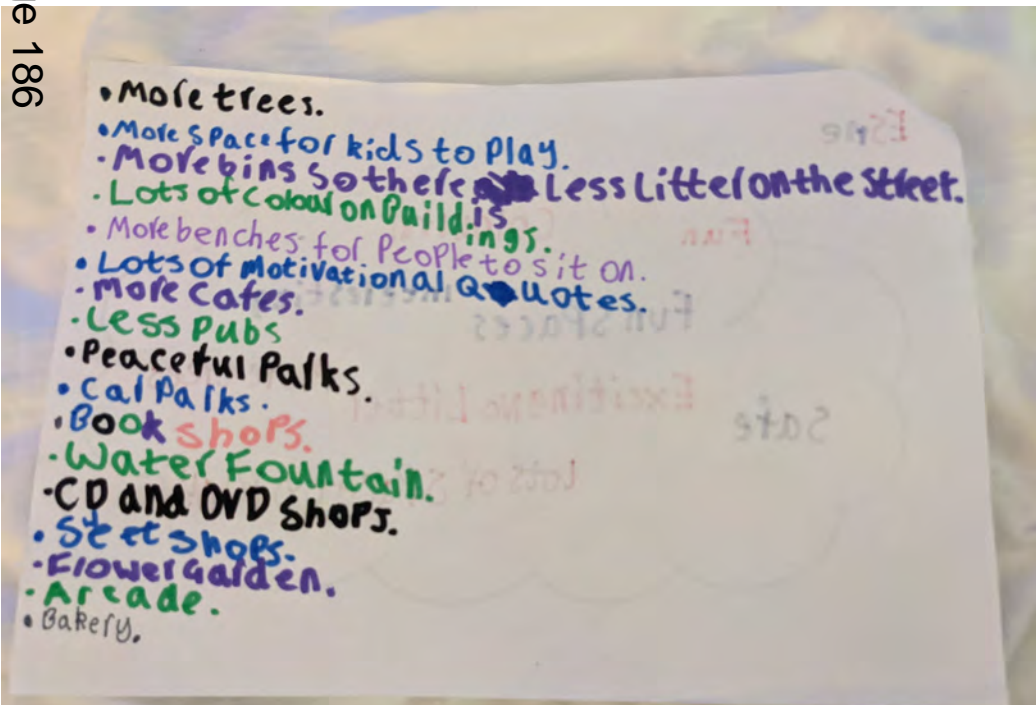 de 186
• More trees.
• More space for kids to Play.
• More bins so there is Less Litter on the street.
• Lots of colour on Buildings.
• More benches for People to sit on.
• Lots of motivational Quotes.
• more cafes.
• Less Pubs
• Peaceful Parks.
• Car Parks.
• Book shops.
• Water Fountain.
• CD and DVD shops.
• Steet shops.
• Flower Garden.
• Arcade.
• Bakery.
Esme
Fun
Fun spaces
Exciting no Litter
Safe
Lots of